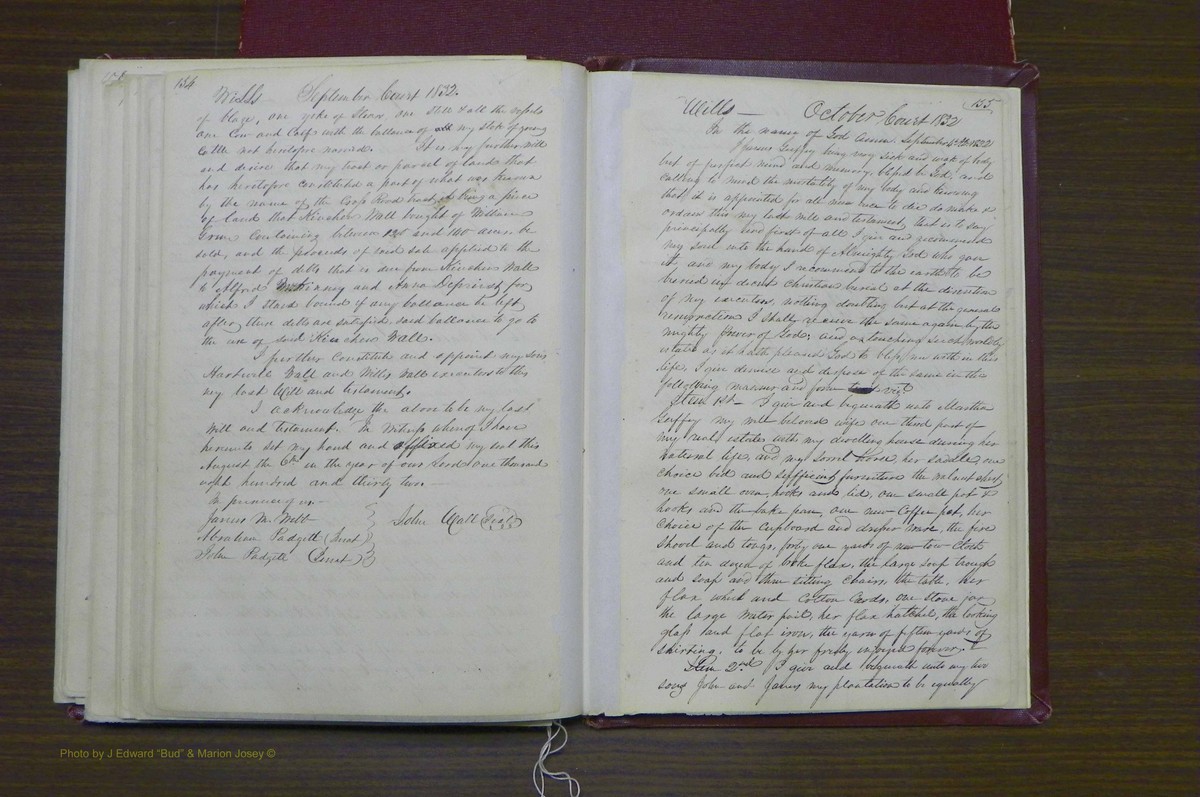 134
Wills September Court 1832.
of blaze, one yoke of Stears, one Still & all the vessels
one Cow and Calf with the ballance of all my Stok of young
cattle not heretofore named. It is my further will
and desire that my tract or parsel of lands that
has heretofore constituted a part of what was known
by the name of the Road tract, it being a piece
of land that Kinchen Wall bought of William
Green Containing between and 140 acres be
sold, and the proceeds of said sale applied to the
payment of debts that is due from Kinchen Wall
to Alford McKinney and Anna Depriest for
which I stand bound if any ballance be left
after these debts are satisfied, said ballance to go to
the use of said Kinchen Wall.
I further Constitute and appoint my sons
Hartwell Wall and Willis Wall executors to this
my last Will and testament.
I acknowledge the above to be my last
will and testament. In witness whereof I have
hereunto set my hand and affixed my seal this
August the 6th in the year of our Lord one thousand
eight hundred and thirty two —
In presence of us —
James M. Webb John Wall (Seal)
Abraham Padgett (Jurat)
John Padgett (Jurat)
135
Wills — October Court 1832
In the name of God Amen. September 1832
I James Guffey being very sick and weak of body
but of perfect mind and memory, blessed be God, and
calling to mind the mortality of my body and knowing
that it is appointed for all men once to die do make &
ordain this my last will and testament, that is to say
principally and first of all I give and recommend
my soul into the hand of Almighty God who gave
it, and my body I recommend to the earth to be
buried in decent Christian burial at the discretion
of my executors, nothing doubting but at the general
resurrection I shall receive the same again by the
mighty power of God; and as touching such worldly
estate as it hath pleased God to bless me with in this
life, I give devise and dispose of the same in the
following manner and form viz
Item 1st — I give and bequeath unto Martha
Guffey my well beloved wife one third part of
my real estate with my dwelling house during her
natural life, and my sorrel horse, her saddle, one
choice bed and sufficient furniture the walnut chest,
one small oven, hooks and lid, one small pot &
hooks and the bake pan, one new Coffee pot, her
choice of the Cupboard and dresser ware, the fire
shovel and tongs, forty one yards of new tow cloth
and ten dozen of broke flax, the large soap trough
and soap and three sitting chairs, the table, her
flax wheel and Cotton Cards, one stone jar
the large water pail, her flax hatchel, the looking
glass and flat iron, the yarn of fifteen yards of
shirting, to be by her freely injoyed forever.
Item 2nd I give and bequeath unto my two
sons John and James my plantation to be equally
Photo by J Edward "Bud" & Marion Josey ©